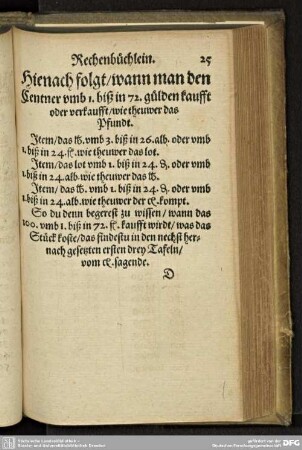 Rechenbüchlein. 25
Hienach folgt/wann man den
Centner vmb 1. biß in 72. gülden kaufft
oder verkaufft/wie theuwer das
Pfundt.
Item/das ℔. vmb 3. biß in 26.alb. oder vmb
1. biß in 24. fl. wie theuwer das lot.
Item/das lot vmb 1. biß in 24. ₰. oder vmb
1.biß in 24.alb.wie theuwer das ℔.
Item/das ℔. vmb 1. biß in 24. ₰. oder vmb
1.biß in 24.alb.wie theuwer der ct. kompt.
So du denn begerest zu wissen/ wann das
100. vmb 1. biß in 72. fl. kaufft wirdt/ was das
Stück koste/das findestu in den nechst her-
nach gesetzten ersten drey Tafeln/
vom ct. sagende.
D